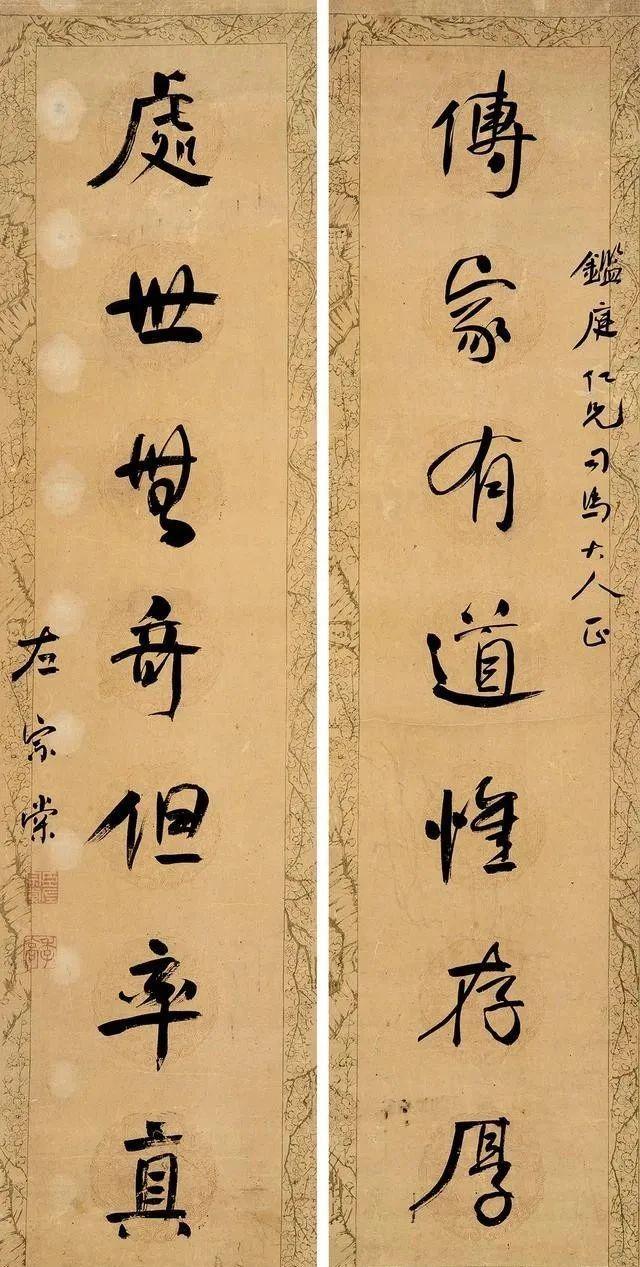 鑑庭仁兄司馬大人正
傳家有道惟存厚
處世無奇但率真
左宗棠